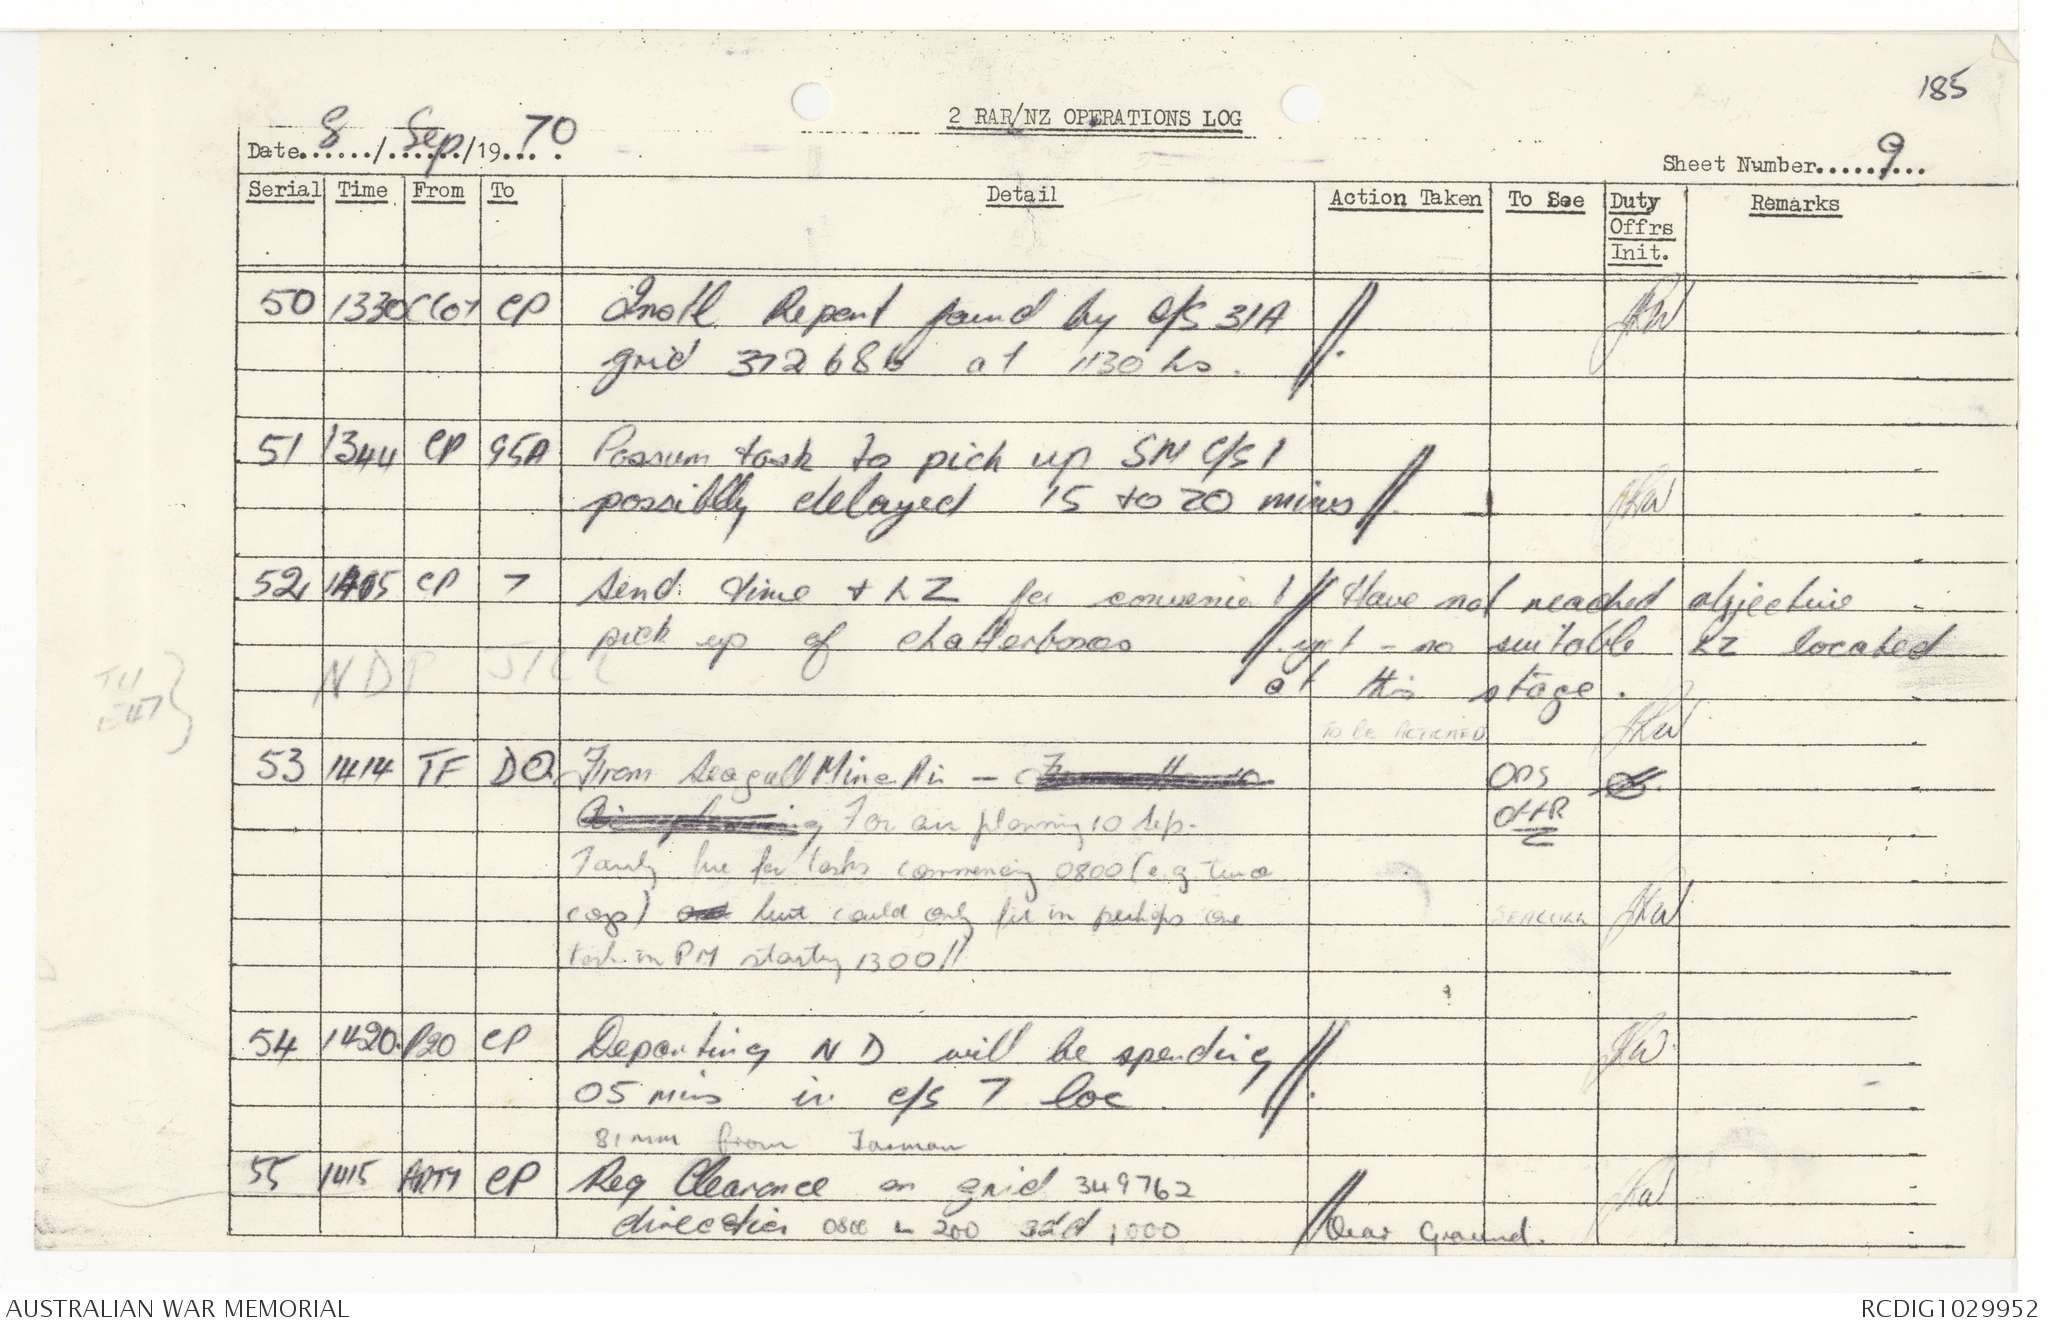 185
2 RAR/NZ OPERATIONS LOG
Date 8 / Sep /1970
Sheet Number 9
Serial Time From To Detail Action Taken To See Duty Offrs Init. Remarks
50 1330 CP Instl Report found by C/S 31A
grid 372686 at 1130 hs.
51 1344 CP 95A Possum task to pick up SM C/S 1
possiblly delayed 15 to 20 mins
52 1405 CP 7 Send time + LZ for convenient Have not reached objective
pick up of chatterboxes yet - no suitable LZ located
NDP
at this stage.
TO BE ACTIONED
53 1414 TF DO From Seagull Mine Air - OPS
For air planning 10 Sep. OFFR
Fairly free for tasks commencing 0800 (e.g. two
coys) but could only fit in perhaps one
task in PM starting 1300
54 1420 P20 CP Departing ND will be spending
05 mins in c/s 7 loc
81mm from Tasman
55 1415 ARTY CP Req Clearance on grid 349762
direction 0800 200 1000 Clear Ground.
AUSTRALIAN WAR MEMORIAL
RCDIG1029952